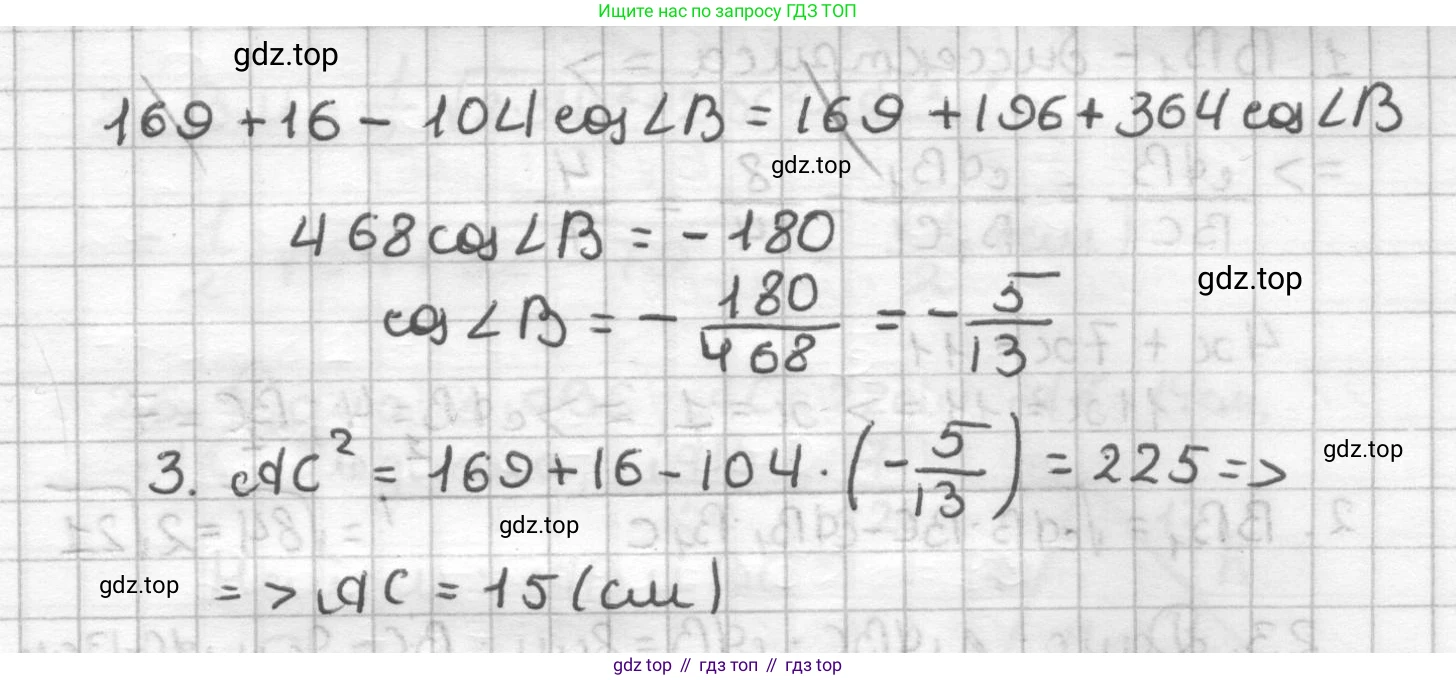 Ищите нас по запросу ГДЗ ТОП
gdz.top
169 + 16 - 104 cos∠B = 169 + 196 + 364 cos∠B
gdz.top
468 cos∠B = - 180
gdz.top
cos∠B = - 180/468 = - 5/13
3. AC² = 169 + 16 - 104 · (- 5/13) = 225 =>
gdz.top
gdz.top
gdz.top
=> AC = 15 (см)
gdz top // гдз топ // gdz top